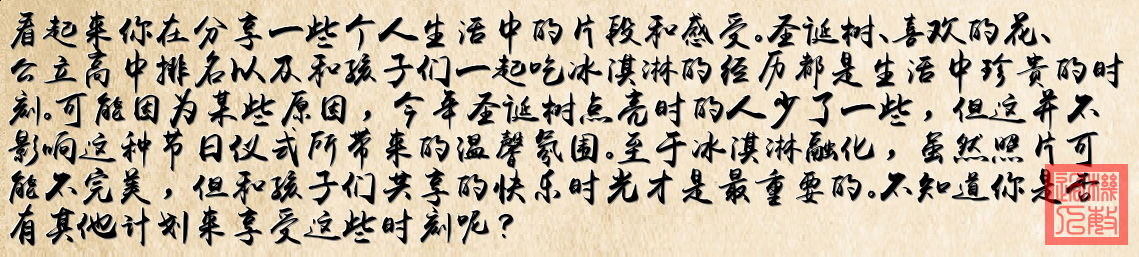 看起来你在分享一些个人生活中的片段和感受。圣诞树、喜欢的花、
公立高中排名以及和孩子们一起吃冰淇淋的经历都是生活中珍贵的时
刻。可能因为某些原因，今年圣诞树点亮时的人少了一些，但这并不
影响这种节日仪式所带来的温馨氛围。至于冰淇淋融化，虽然照片可
能不完美，但和孩子们共享的快乐时光才是最重要的。不知道你是否
有其他计划来享受这些时刻呢？